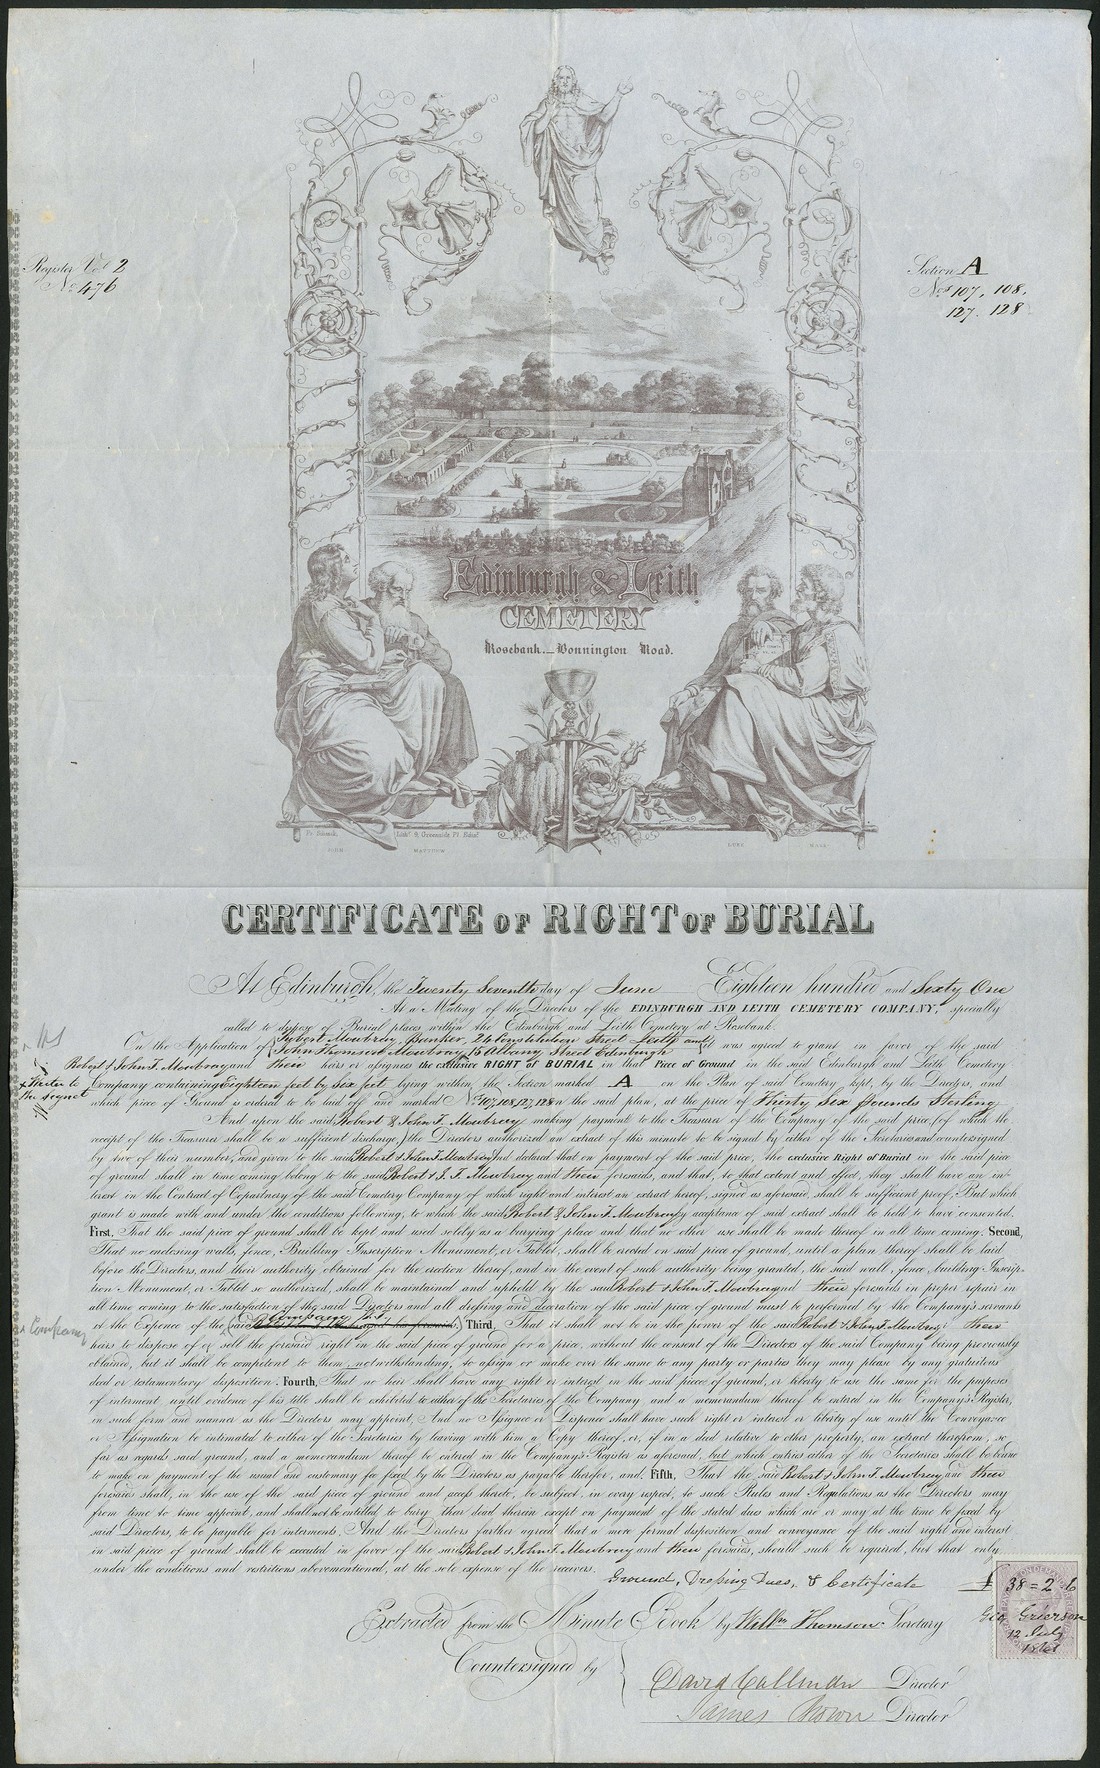 Register Vol 2
No 476
Section A
Nos 107, 108,
127. 128
Edinburgh & Leith
CEMETERY
Rosebank._Bonnington Road.
Fr. Schenck,
Lithr. 9, Greenside Pl. Edinr.
JOHN
MATTHEW
LUKE
MARK
CERTIFICATE OF RIGHT OF BURIAL
At Edinburgh, the Twenty Seventh day of June Eighteen hundred and Sixty One
At a Meeting of the Directors of the EDINBURGH AND LEITH CEMETERY COMPANY, specially
called to dispose of Burial places within the Edinburgh and Leith Cemetery at Rosebank.
On the Application of Robert Mowbray, Banker, 24 Constitution Street Leith and
John Thomson Mowbray 15 Albany Street Edinburgh it was agreed to grant in favor of the said
Robert & John T. Mowbray and their heirs or assignees the exclusive RIGHT of BURIAL in that Piece of Ground in the said Edinburgh and Leith Cemetery
x Writer to
the Signet
Company containing Eighteen feet by Six feet lying within the Section marked A on the Plan of said Cemetery kept, by the Directors, and
which piece of Ground is ordered to be laid off and marked Nos 107, 108, 127, 128 on the said plan, at the price of Thirty Six Pounds Sterling
And upon the said Robert & John T. Mowbray making payment to the Treasurer of the Company of the said price, (of which the
receipt of the Treasurer shall be a sufficient discharge,) the Directors authorized an extract of this minute to be signed by either of the Secretaries and countersigned
by two of their number, and given to the said Robert & John T. Mowbray and declared that on payment of the said price, the exclusive Right of Burial in the said piece
of ground shall in time coming belong to the said Robert & J. T. Mowbray and their foresaids, and that, to that extent and effect, they shall have an in-
terest in the Contract of Copartnery of the said Cemetery Company of which right and interest an extract hereof, signed as aforesaid, shall be sufficient proof, But which
grant is made with and under the conditions following, to which the said Robert & John T. Mowbray by acceptance of said extract shall be held to have consented,
First, That the said piece of ground shall be kept and used solely as a burying place and that no other use shall be made thereof in all time coming: Second,
That no enclosing walls, fence, Building Inscription Monument, or Tablet, shall be erected on said piece of ground, until a plan thereof shall be laid
before the Directors, and their authority obtained for the erection thereof, and in the event of such authority being granted, the said wall, fence, building Inscrip-
tion Monument, or Tablet so authorized, shall be maintained and upheld by the said Robert & John T. Mowbray and their foresaids in proper repair in
all time coming to the satisfaction of the said Directors and all dressing and decoration of the said piece of ground must be performed by the Company's servants
x Company
at the Expence of the said Company Third, That it shall not be in the power of the said Robert & John T. Mowbray or their
heirs to dispose of or sell the foresaid right in the said piece of ground for a price, without the consent of the Directors of the said Company being previously
obtained, but it shall be competent to them, notwithstanding, to assign or make over the same to any party or parties they may please by any gratuitous
deed or testamentary disposition. Fourth, That no heir shall have any right or interest in the said piece of ground, or liberty to use the same for the purposes
of interment until evidence of his title shall be exhibited to either of the Secretaries of the Company and a memorandum thereof be entered in the Company's Register,
in such form and manner as the Directors may appoint, And no Assignee or Disponee shall have such right or interest or liberty of use until the Conveyance
or Assignation be intimated to either of the Secretaries by leaving with him a Copy thereof, or, if in a deed relative to other property, an extract therefrom, so
far as regards said ground, and a memorandum thereof be entered in the Company's Register as aforesaid, but which entries either of the Secretaries shall be bound
to make on payment of the usual and customary fee fixed by the Directors as payable therefor, and, Fifth, That the said Robert & John T. Mowbray and their
foresaids shall, in the use of the said piece of ground and access thereto, be subject, in every respect, to such Rules and Regulations as the Directors may
from time to time appoint, and shall not be entitled to bury their dead therein except on payment of the stated dues which are or may at the time be fixed by
said Directors, to be payable for interments. And the Directors farther agreed that a more formal disposition and conveyance of the said right and interest
in said piece of ground shall be executed in favor of the said Robert & John T. Mowbray and their foresaids, should such be required, but that only
under the conditions and restrictions abovementioned, at the sole expense of the receivers.
Ground, Dressing Dues, & Certificate £ 38 = 2 6
Extracted from the Minute Book by Willm Thomson Secretary
Geo Grierson
12 July
1861
Countersigned by
David Callender Director
James Brown Director